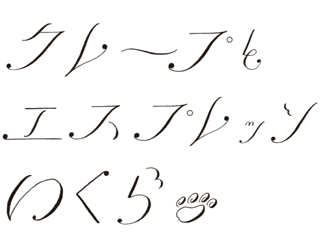 クレープと
エスプレッソ
のくら